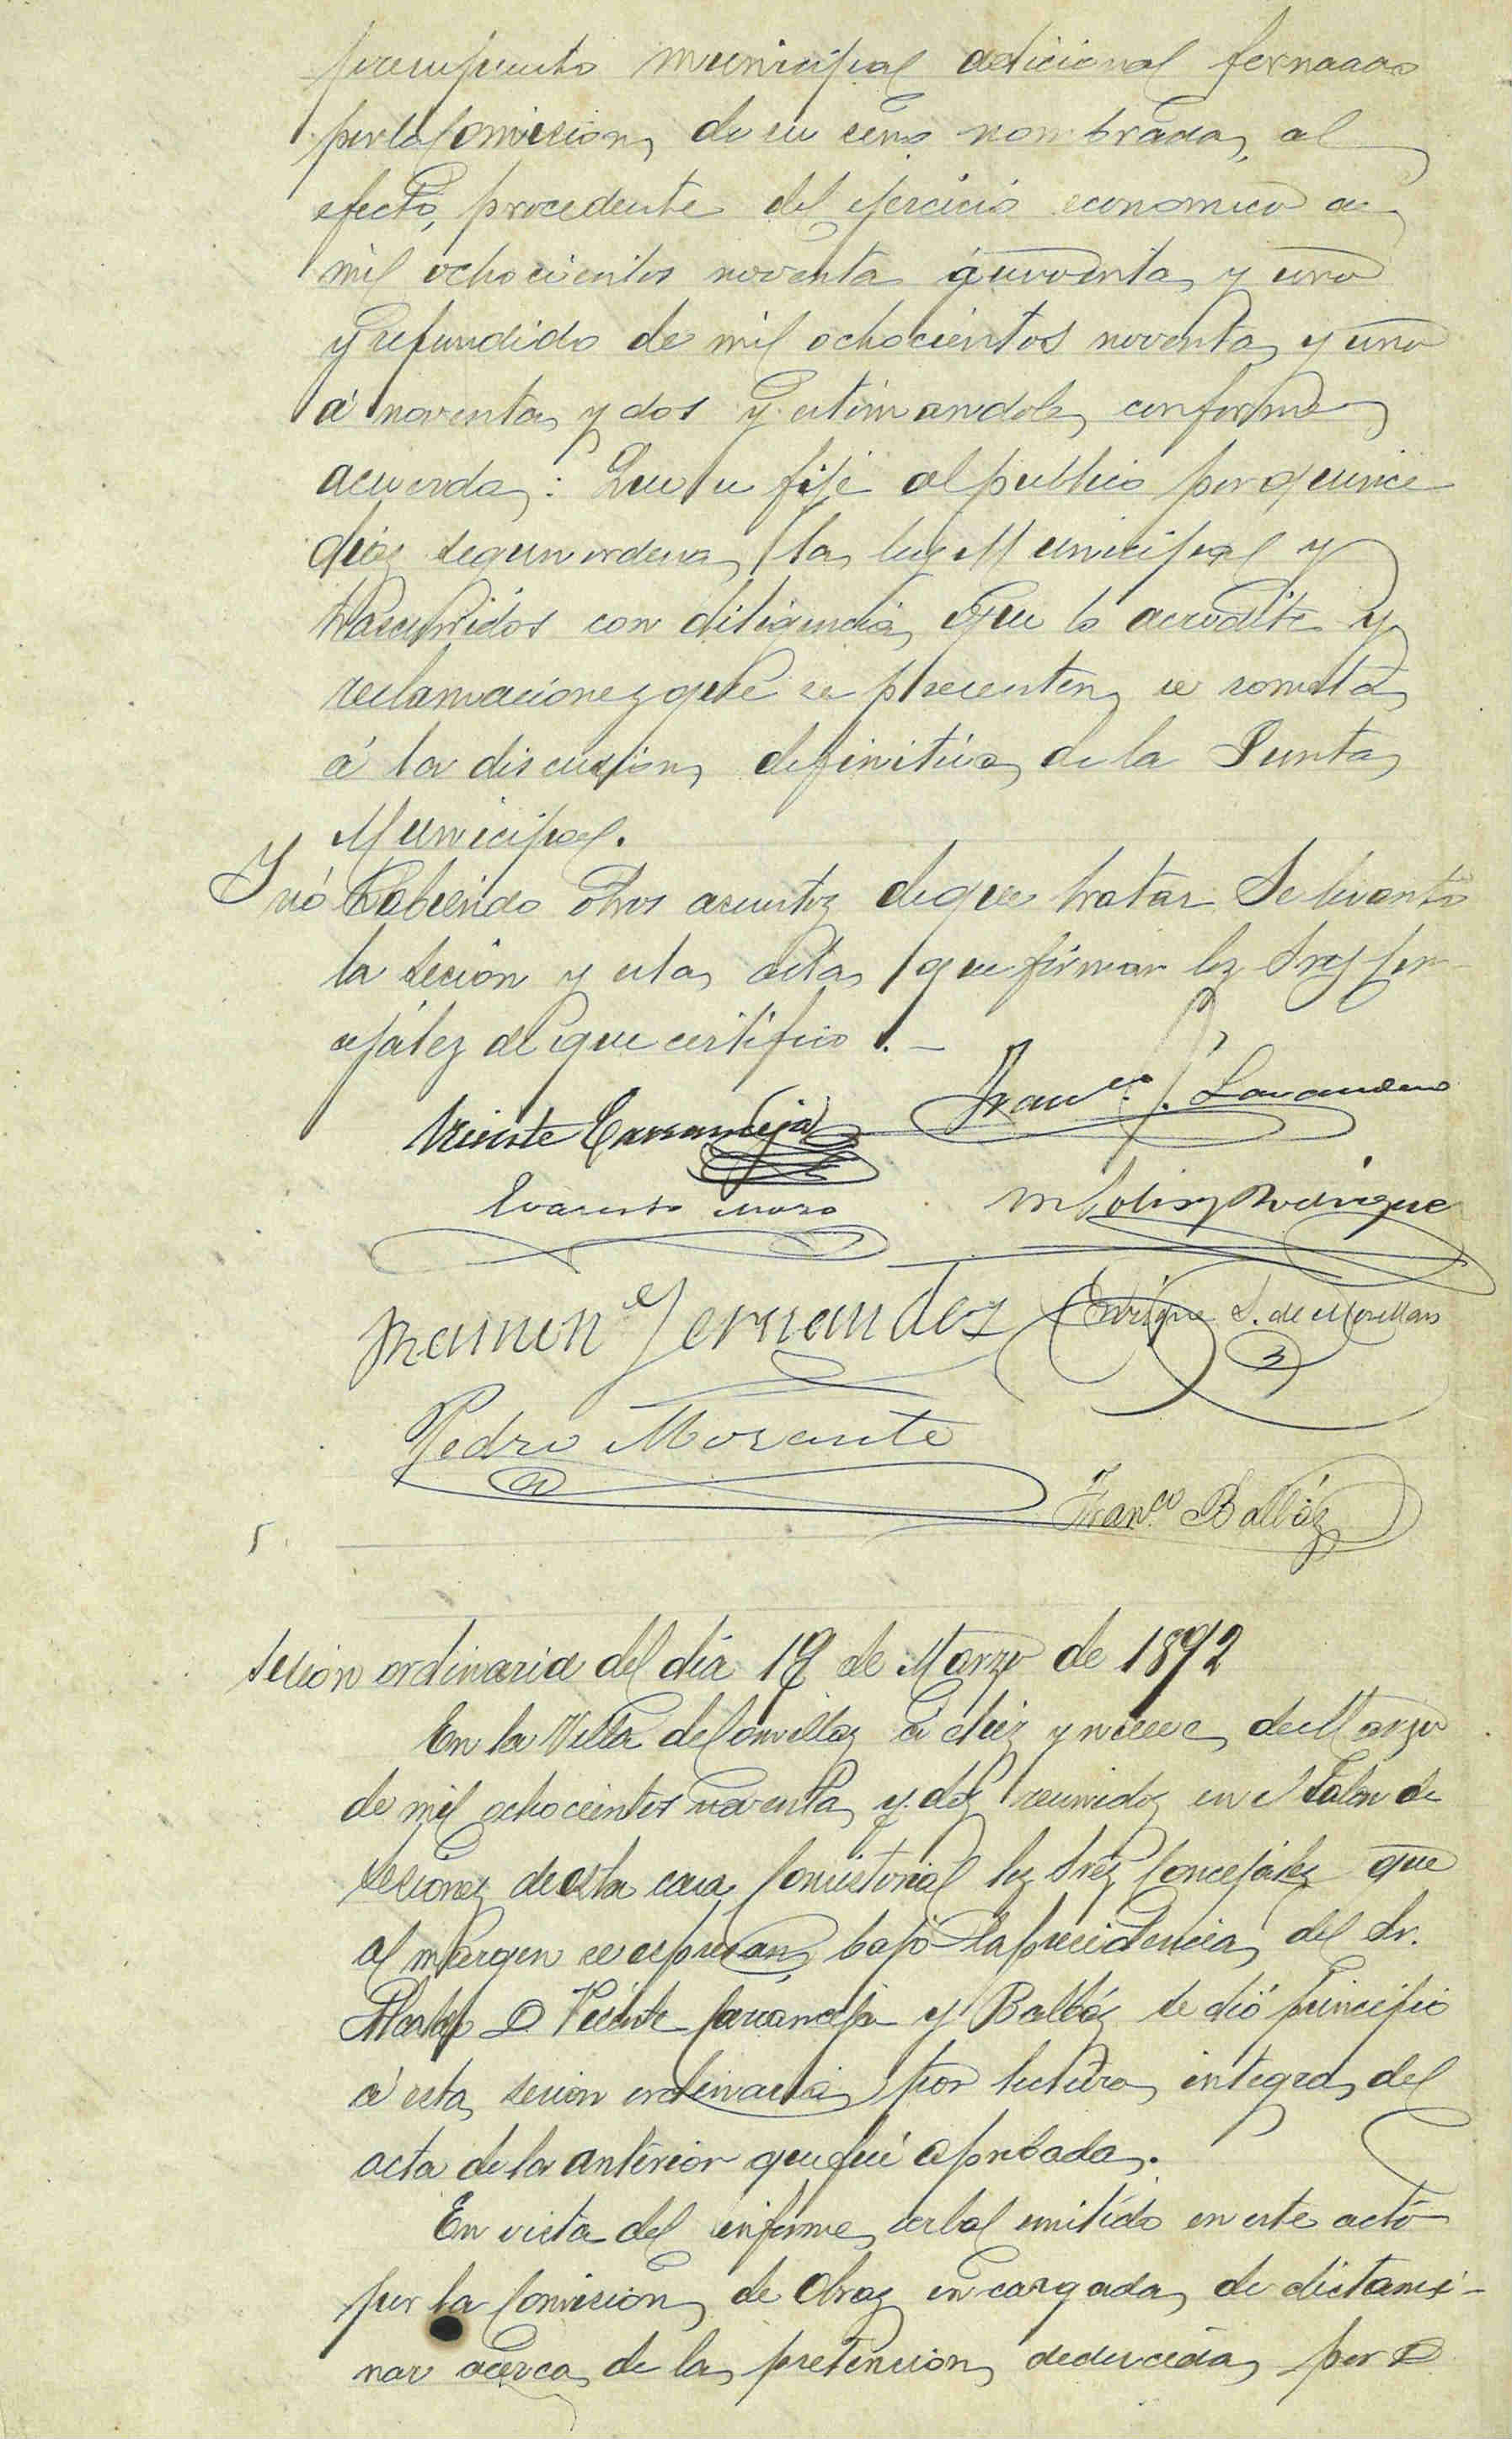 presupuesto municipal adicional formado
por la Comision de su seno nombrada, al
efecto, procedente del ejercicio economico de
mil ochocientos noventa á noventa y uno
y refundido de mil ochocientos noventa y uno
á noventa y dos y estimandole conforme
acuerda: Que se fije al publico por quince
dias segun ordena la ley Municipal y
trascurridos con diligencia que lo acredite y
reclamaciones que se presenten se someta
á la discusion definitiva de la Junta
Municipal.
Y nó habiendo otros asuntos de que tratar Se levantó
la sesión y esta acta que firman los Sres Con-
cejáles de que certifico.—
Vicente Carranceja
Franco. J. Lavandero
Evaristo Moro
M Solis y Rodriguez
Ramon Fernandez
Enrique S. de Movellan
Pedro Morante
Franco Balbás
Sesion ordinaria del día 19 de Marzo de 1892
En la Villa de Comillas á diez y nueve de Marzo
de mil ochocientos noventa y dos reunidos en el Salon de
sesiones de esta casa Consistorial los Sres Concejales que
al margen se espresan bajo la presidencia del Sr.
Alcalde D Vicente Carranceja y Balbás se dió principio
á esta sesion ordinaria por lectura integra del
acta de la anterior que fué aprobada.
En vista del informe verbal emitido en este actó
por la Comision de Obras encargada de dictami-
nar acerca de la pretension deducida por D